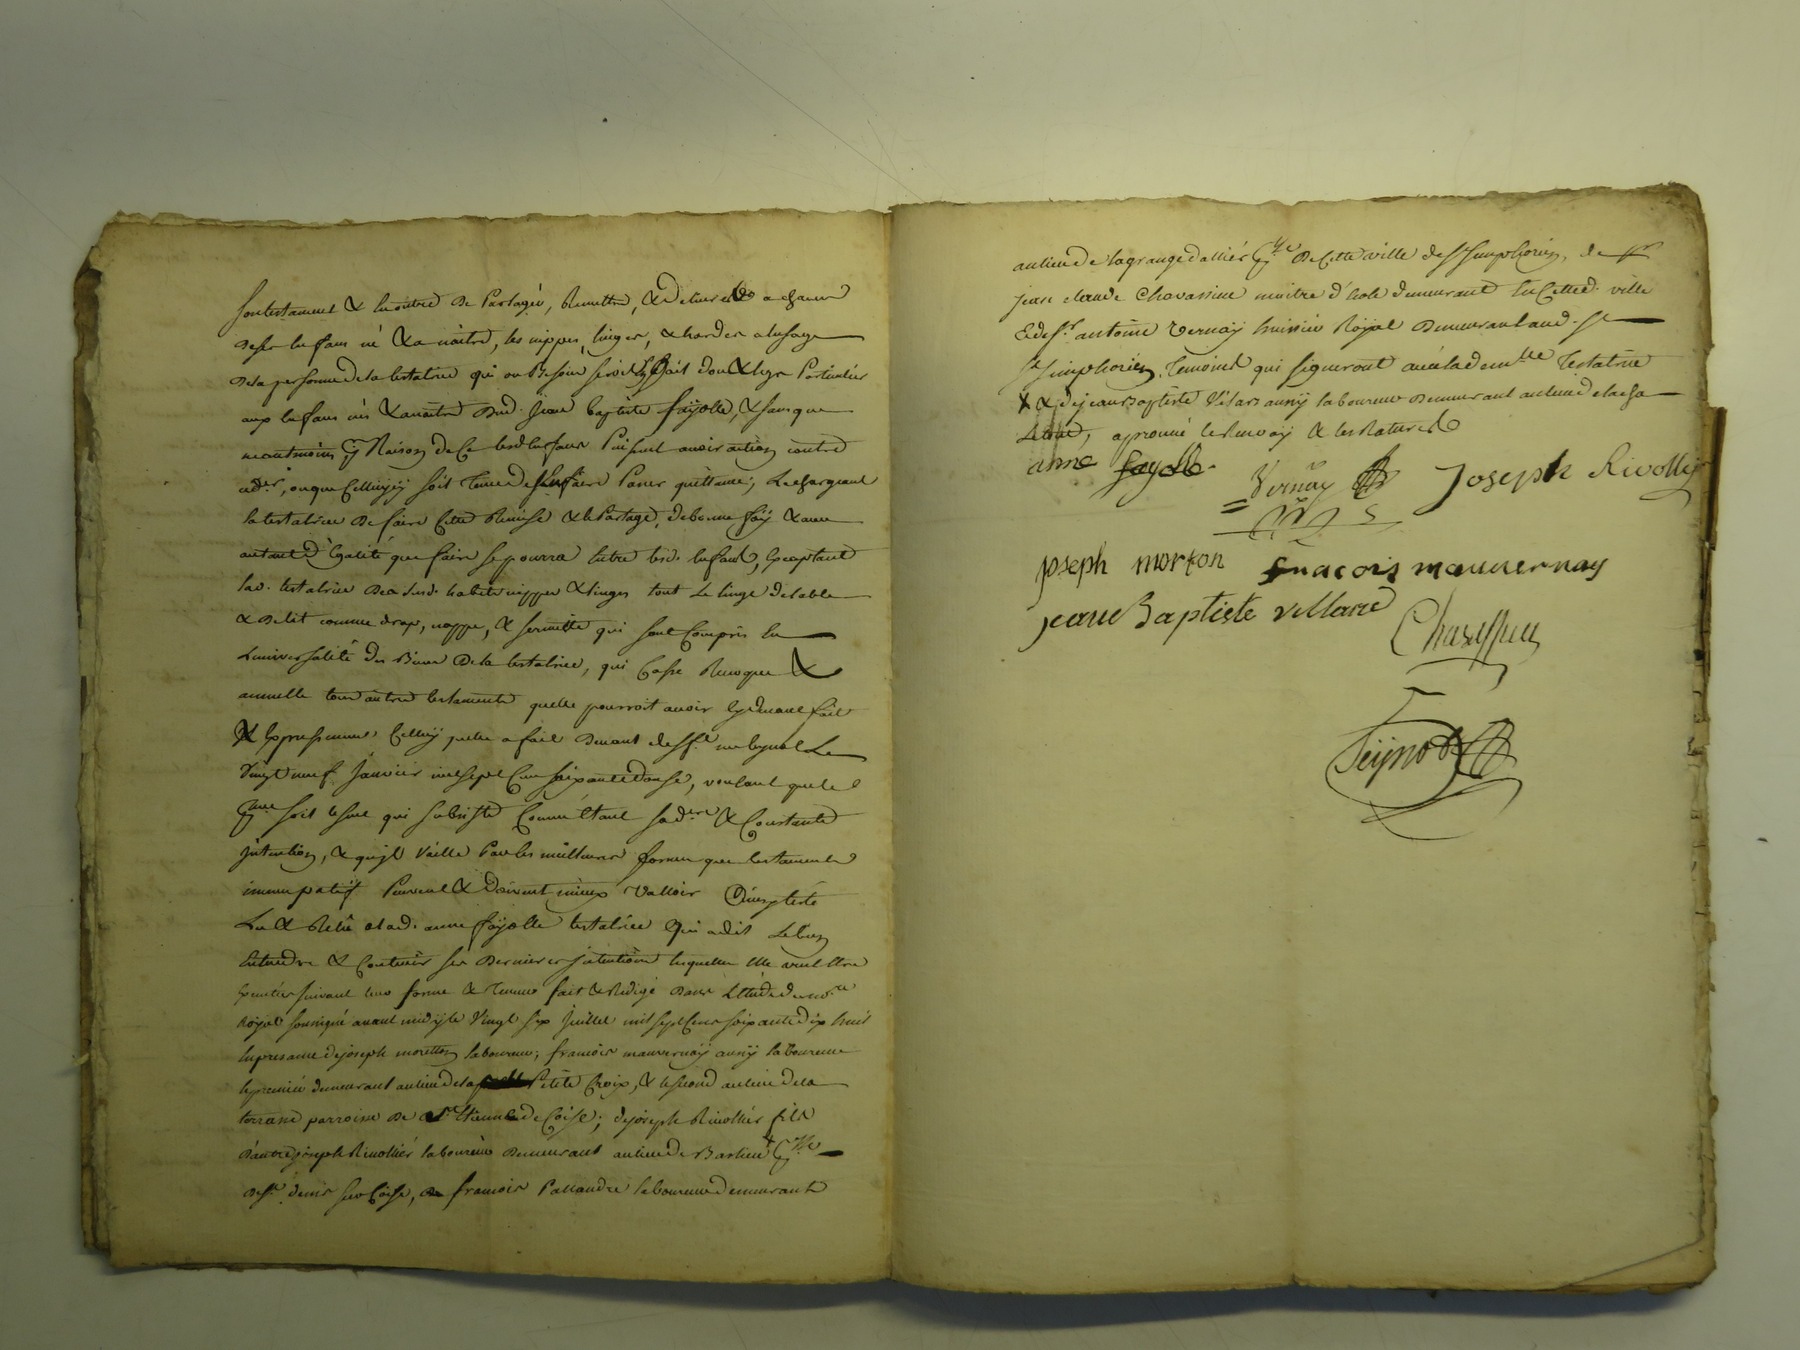 son testament & en outre de Partager, Remettre, & delivrer a chacun
desd. enfans né & a naitre, les nippes, linges, & hardes a lusage
de la personne de la testatrice qui au Besoin seroit fait don & legs Particulier
aux enfans nés & a naitre dud. Jean baptiste fayolle, & sans que
neantmoins Raison de Ce lesd. enfans Puissent avoir action contre
ced.er, ou que Celluycy soit Tenu de sen faire Passer quittance; Le chargeant
la testatrice de faire Cette Remise & le Partage de bonne foÿ & avec
autant dégalité que faire se pourra entre lesd. enfans, Exceptant
lad. testatrice de sesd. habits nippes & linges tout Le linge de table
& de lit comme drap, nappe, & serviette qui sont Compris En
Luniversalité des Biens de la testatrice, qui Casse Revoque &
annulle tous autres testaments quelle pourroit avoir Cydevant fait
& Expressement Celluy quelle a fait devant Le
Vingt neuf Janvier mil sept Cens soixante douse, voulant que le
soit le seul qui subsiste Comme Etant sa d.ere & Constante
jntention, & quÿl vaille Par les meilleures formes que testaments
nuncupatif Peuvent & doivent mieux Valloir
Lu & Relû alad. anne faÿolle testatrice Qui a dit Le bien
Entendre & Contenir ses Dernieres jntentions lesquelles elle veut Etre
Executées suivant leur forme & Teneur fait & Redigé dans L'Etude du no.re
Roÿal soussigné avant midÿ le Vingt six Juillet mil sept Cens soixante dix huit
En presence de joseph moretton laboureur; francois mauvernaÿ aussÿ laboureur
le premier demeurant au lieu de la Petite Croix, & le second au lieu de la
parroisse de St Etienne de Coise; de joseph Rivollier fils
d'autre joseph Rivollier laboureur demeurant au lieu de
de St. denis sur Coise, de francois Pallandre laboureur demeurant
au lieu de lagrange dallier de Cette ville de St Simphorien, de sr
jean claude Chavassieu maitre d'Ecole demeurant En Cetted. ville
& de sr. antoine Vernaÿ huissier Roÿal demeurant aud. St
St Simphorien, Temoins qui signeront avec lade.mlle Testatrice
& de jean Baptiste Vilard aussÿ laboureur demeurant au lieu de
aprouvé le Renvoÿ & les Ratures
anne fayolle
Vernaÿ Joseph Rivollier
joseph morton fracois mauvernay
jean Baptiste villard
Chavassieu
Peÿnot